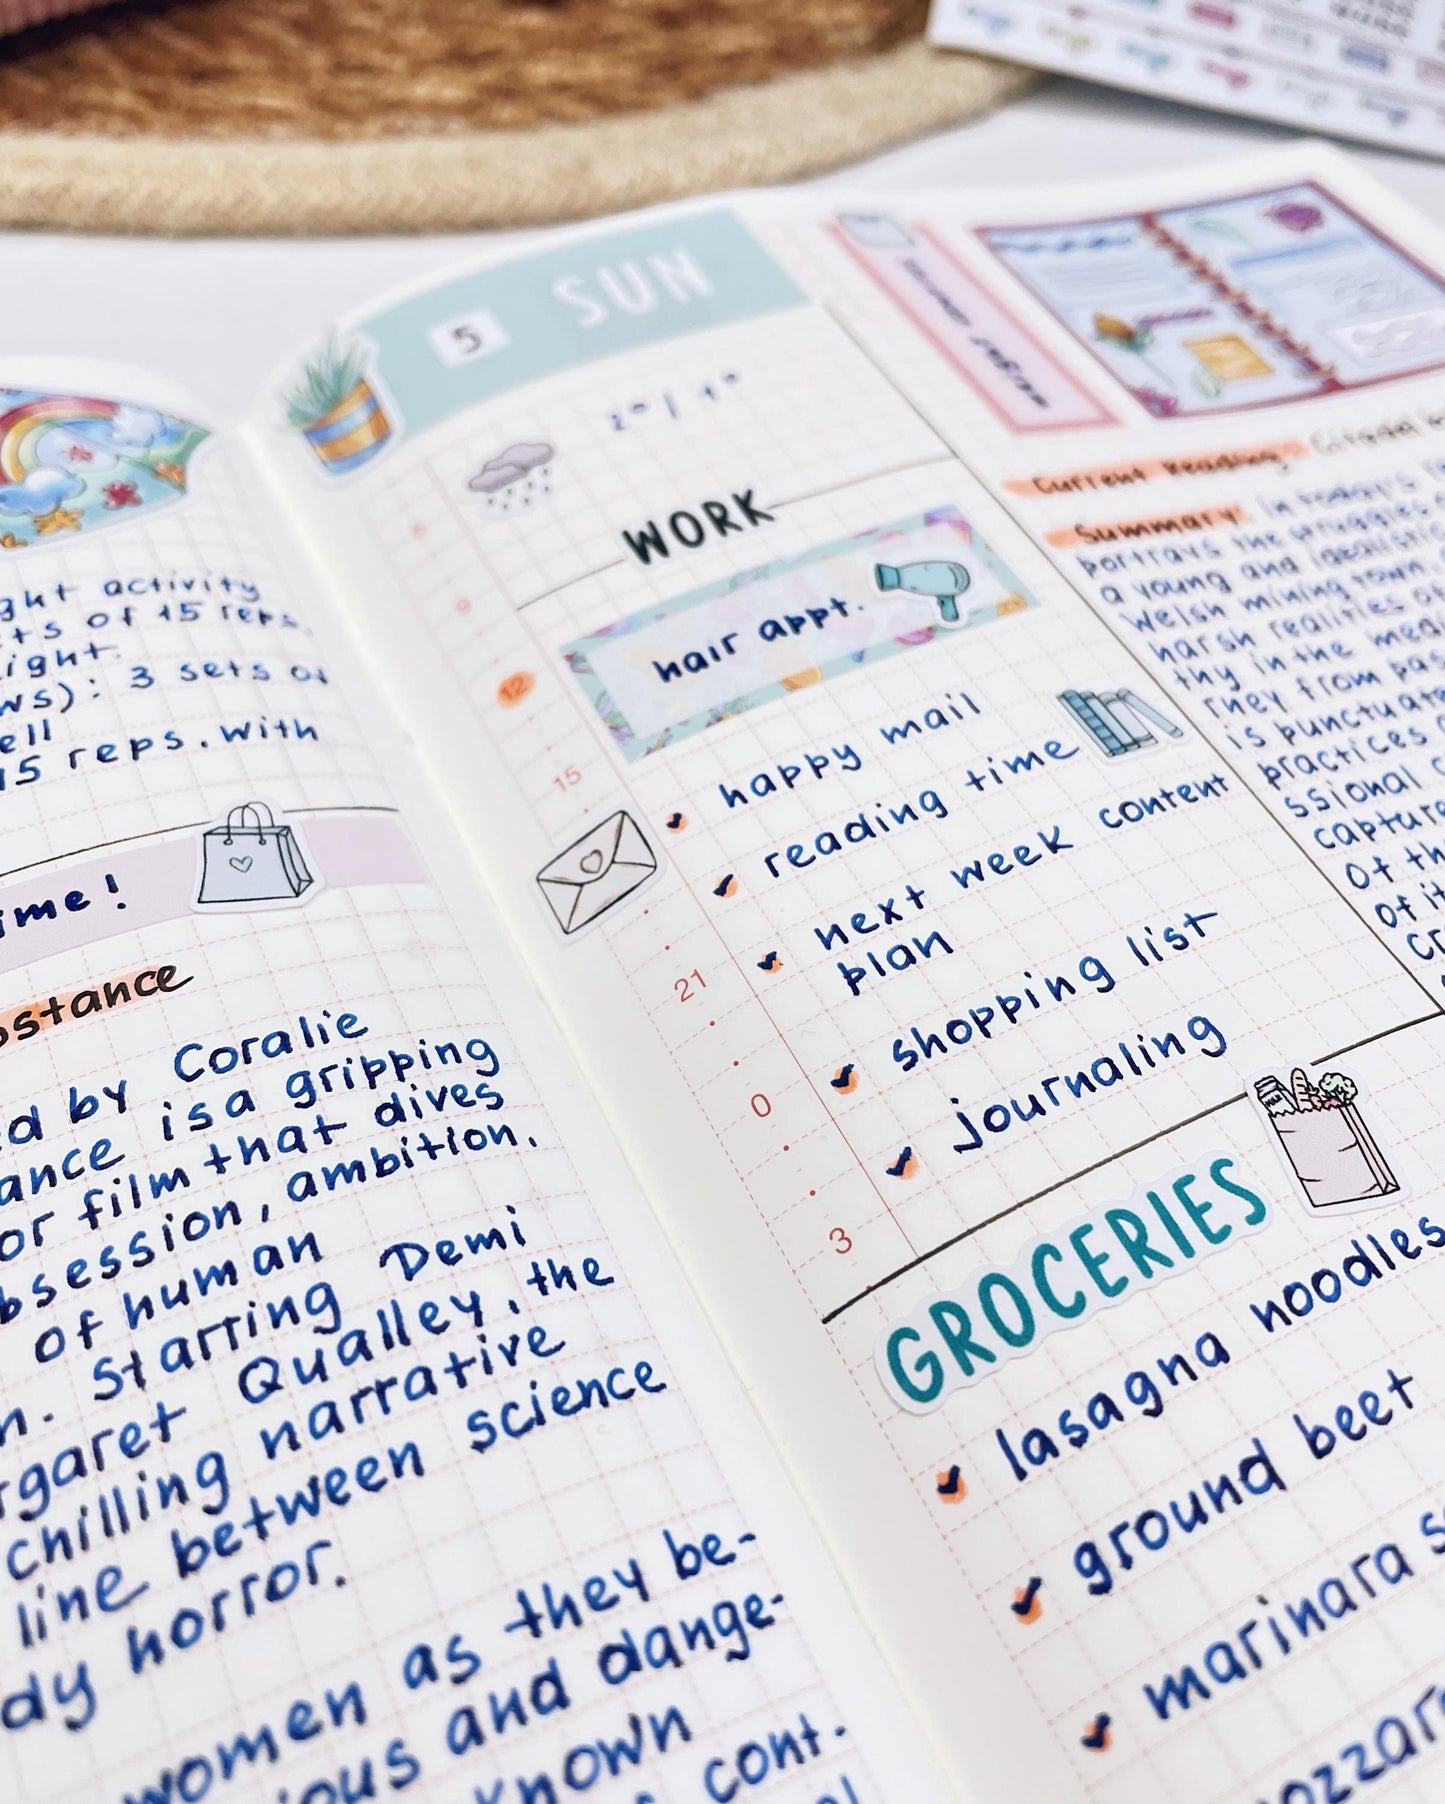 ght activity
ts of 15 reps.
ight.
ws): 3 sets of
ell
15 reps. with
ime!
bstance
ed by Coralie
ance is a gripping
or film that dives
bsession, ambition,
of human
n. Starring Demi
rgaret Qualley, the
chilling narrative
line between science
dy horror.
women as they be-
ious and dange-
known
cont.
5 SUN
WORK
hair appt.
happy mail
reading time
next week content
plan
shopping list
journaling
9
12
15
21
0
3
GROCERIES
lasagna noodles
ground beet
marinara s
ozzar
Current Reading: Citadel
Summary: In today's
portrays the struggles
a young and idealistic
Welsh mining town,
harsh realities
thy in the medi
rney from pas
is punctuate
practices
ssional
capture
of th
of it